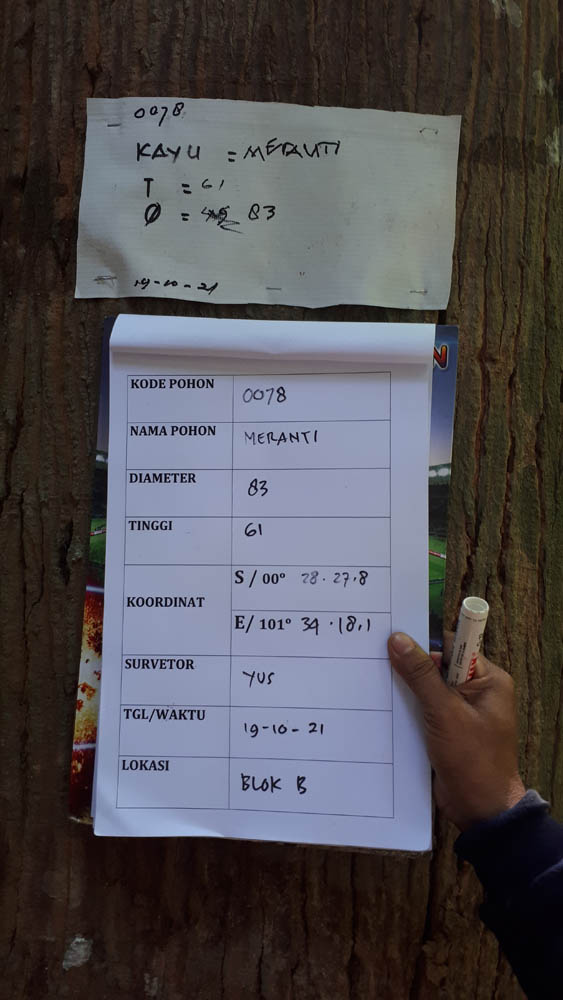 0078
KAYU = MERANTI
T = 61
Ø = 83
19-10-21
KODE POHON 0078
NAMA POHON MERANTI
DIAMETER 83
TINGGI 61
KOORDINAT S / 00° 28.27,8
E/ 101° 34.18,1
SURVETOR YUS
TGL/WAKTU 19-10-21
LOKASI BLOK B